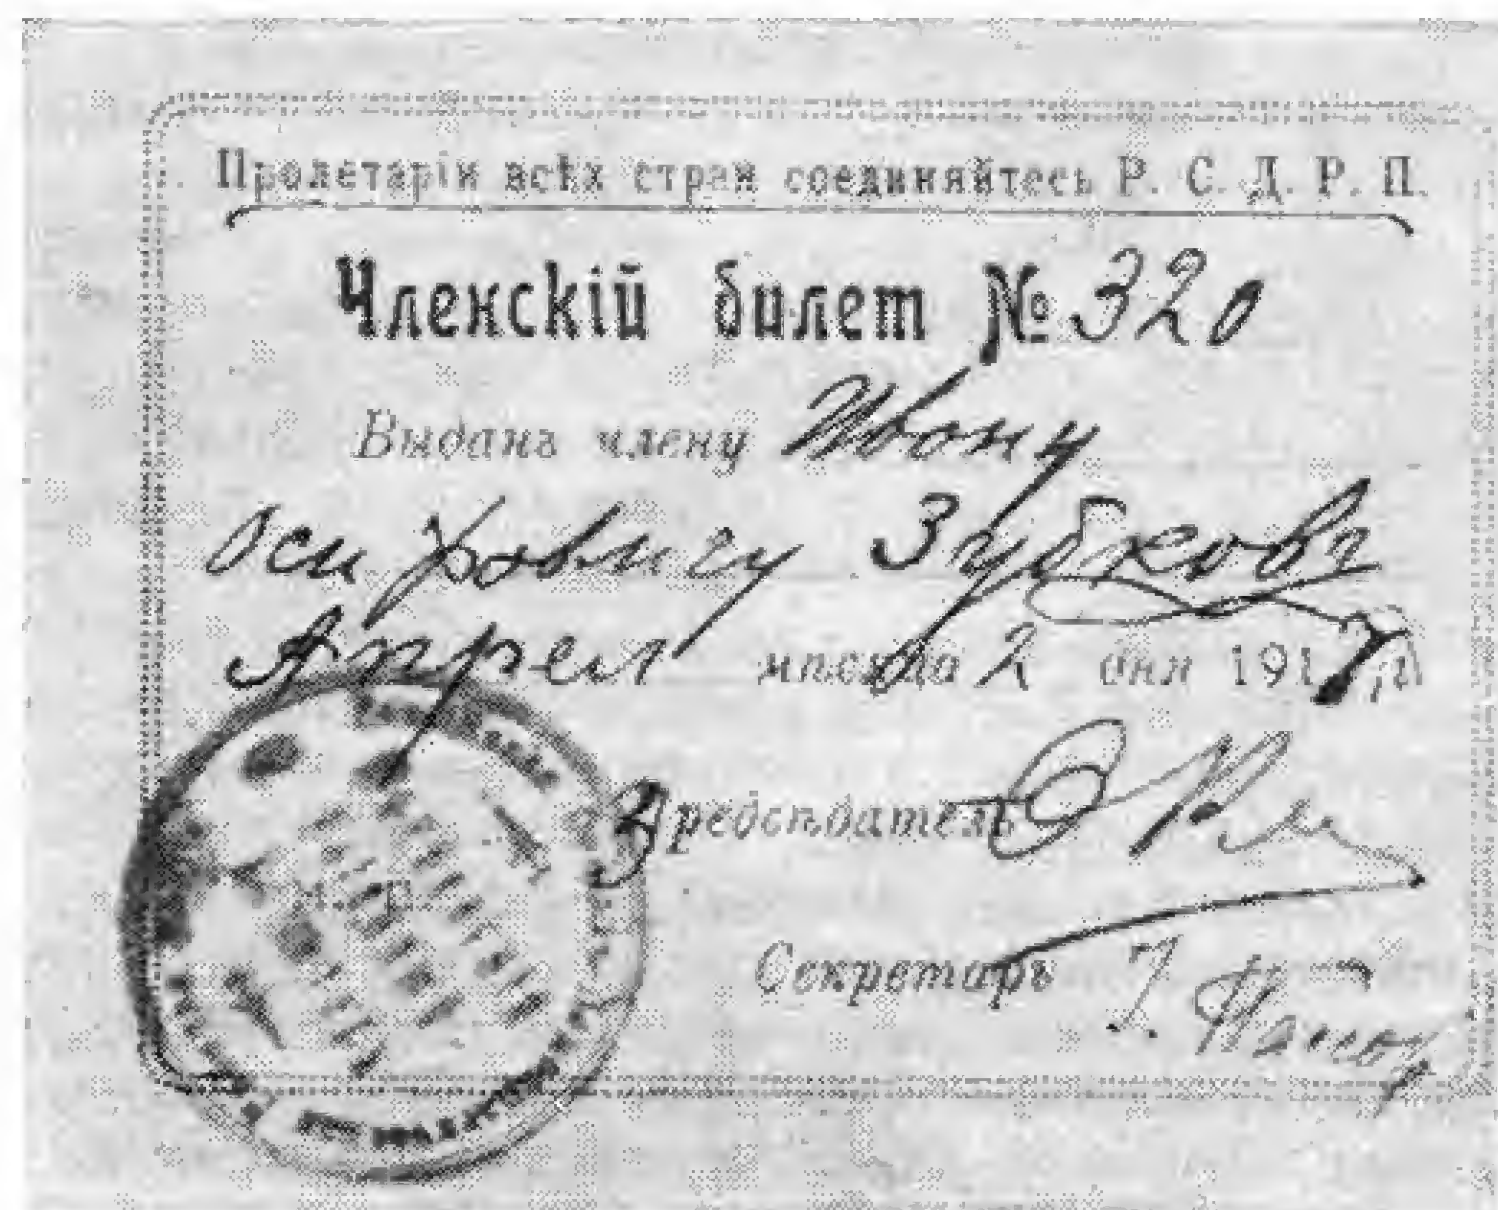 Пролетаріи всѣх стран соединяйтесь Р. С. Д. Р. П.
Членскій билет № 320
Выданъ члену Ивану
Осиповичу Зубковъ
Апрел мѣсяца 2 дня 1917 г.
Предсѣдатель
Секретарь